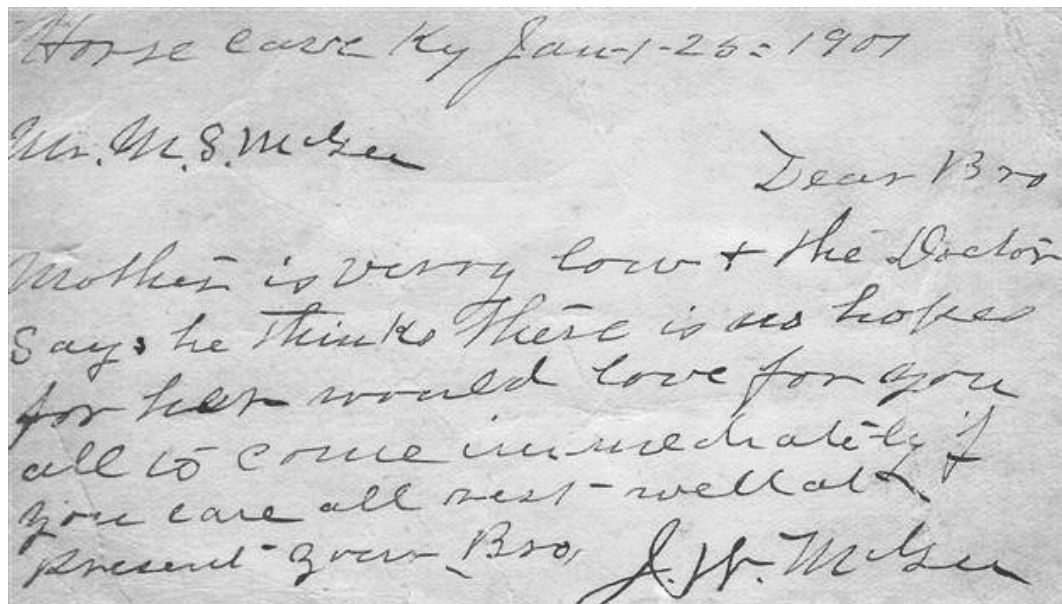 Horse Cave Ky Jan-1-25=1901
Mr. M. S. McGee
Dear Bro
Mother is verry low + the Doctor
Says he thinks there is no hopes
for her would love for you
all to come immediately if
you care all rest well at
present your Bro,
J. W. McGee